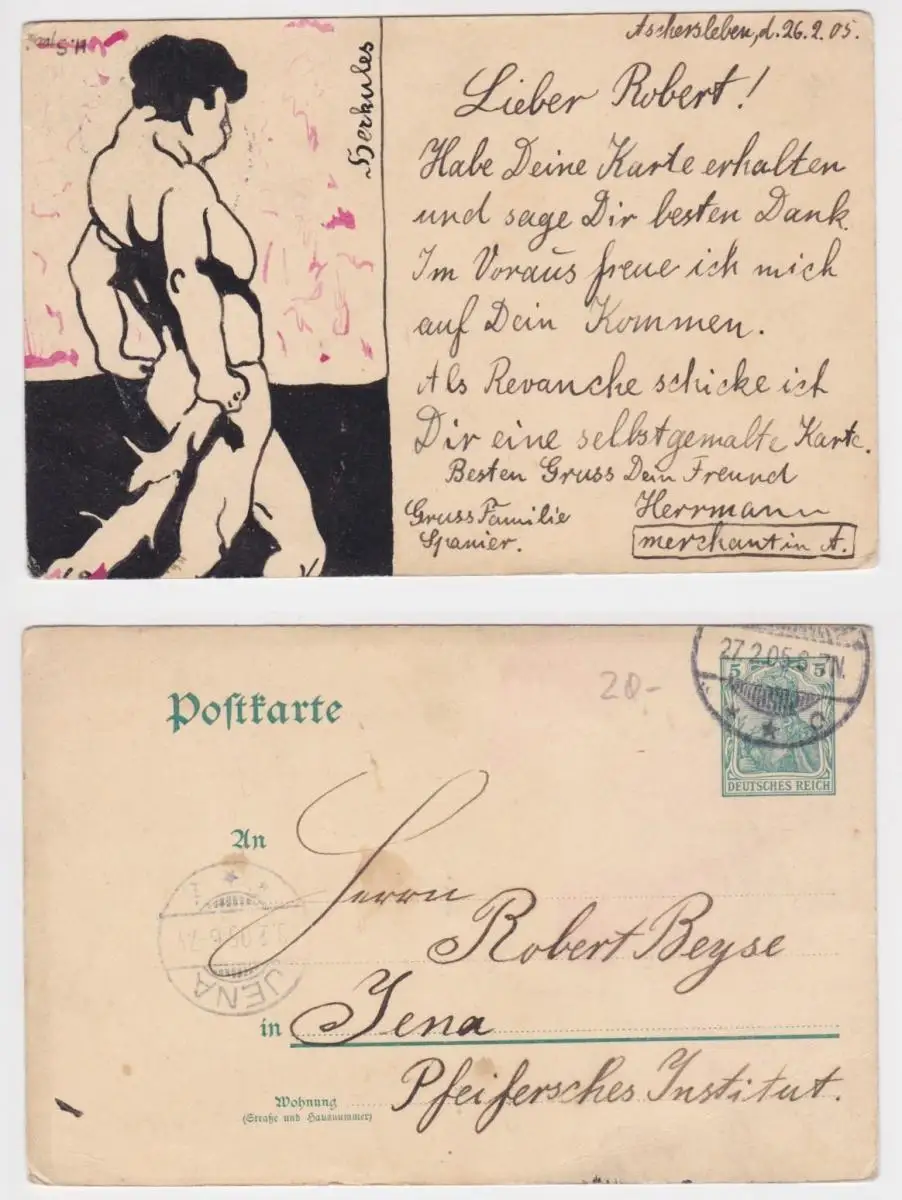 H.S.
Herkules
Aschersleben, d. 26.2.05.
Lieber Robert!
Habe Deine Karte erhalten
und sage Dir besten Dank.
Im Voraus freue ich mich
auf Dein Kommen.
Als Revanche schicke ich
Dir eine selbstgemalte Karte.
Besten Gruss Dein Freund
Herrmann
merchant in A.
Gruss Familie
Spanier.
27.2.05. 6-7N.
20-
5 5
DEUTSCHES REICH
Postkarte
An
Herrn
Robert Beyse
JENA
in Jena
Pfeifersches Institut.
Wohnung
(Straße und Hausnummer)